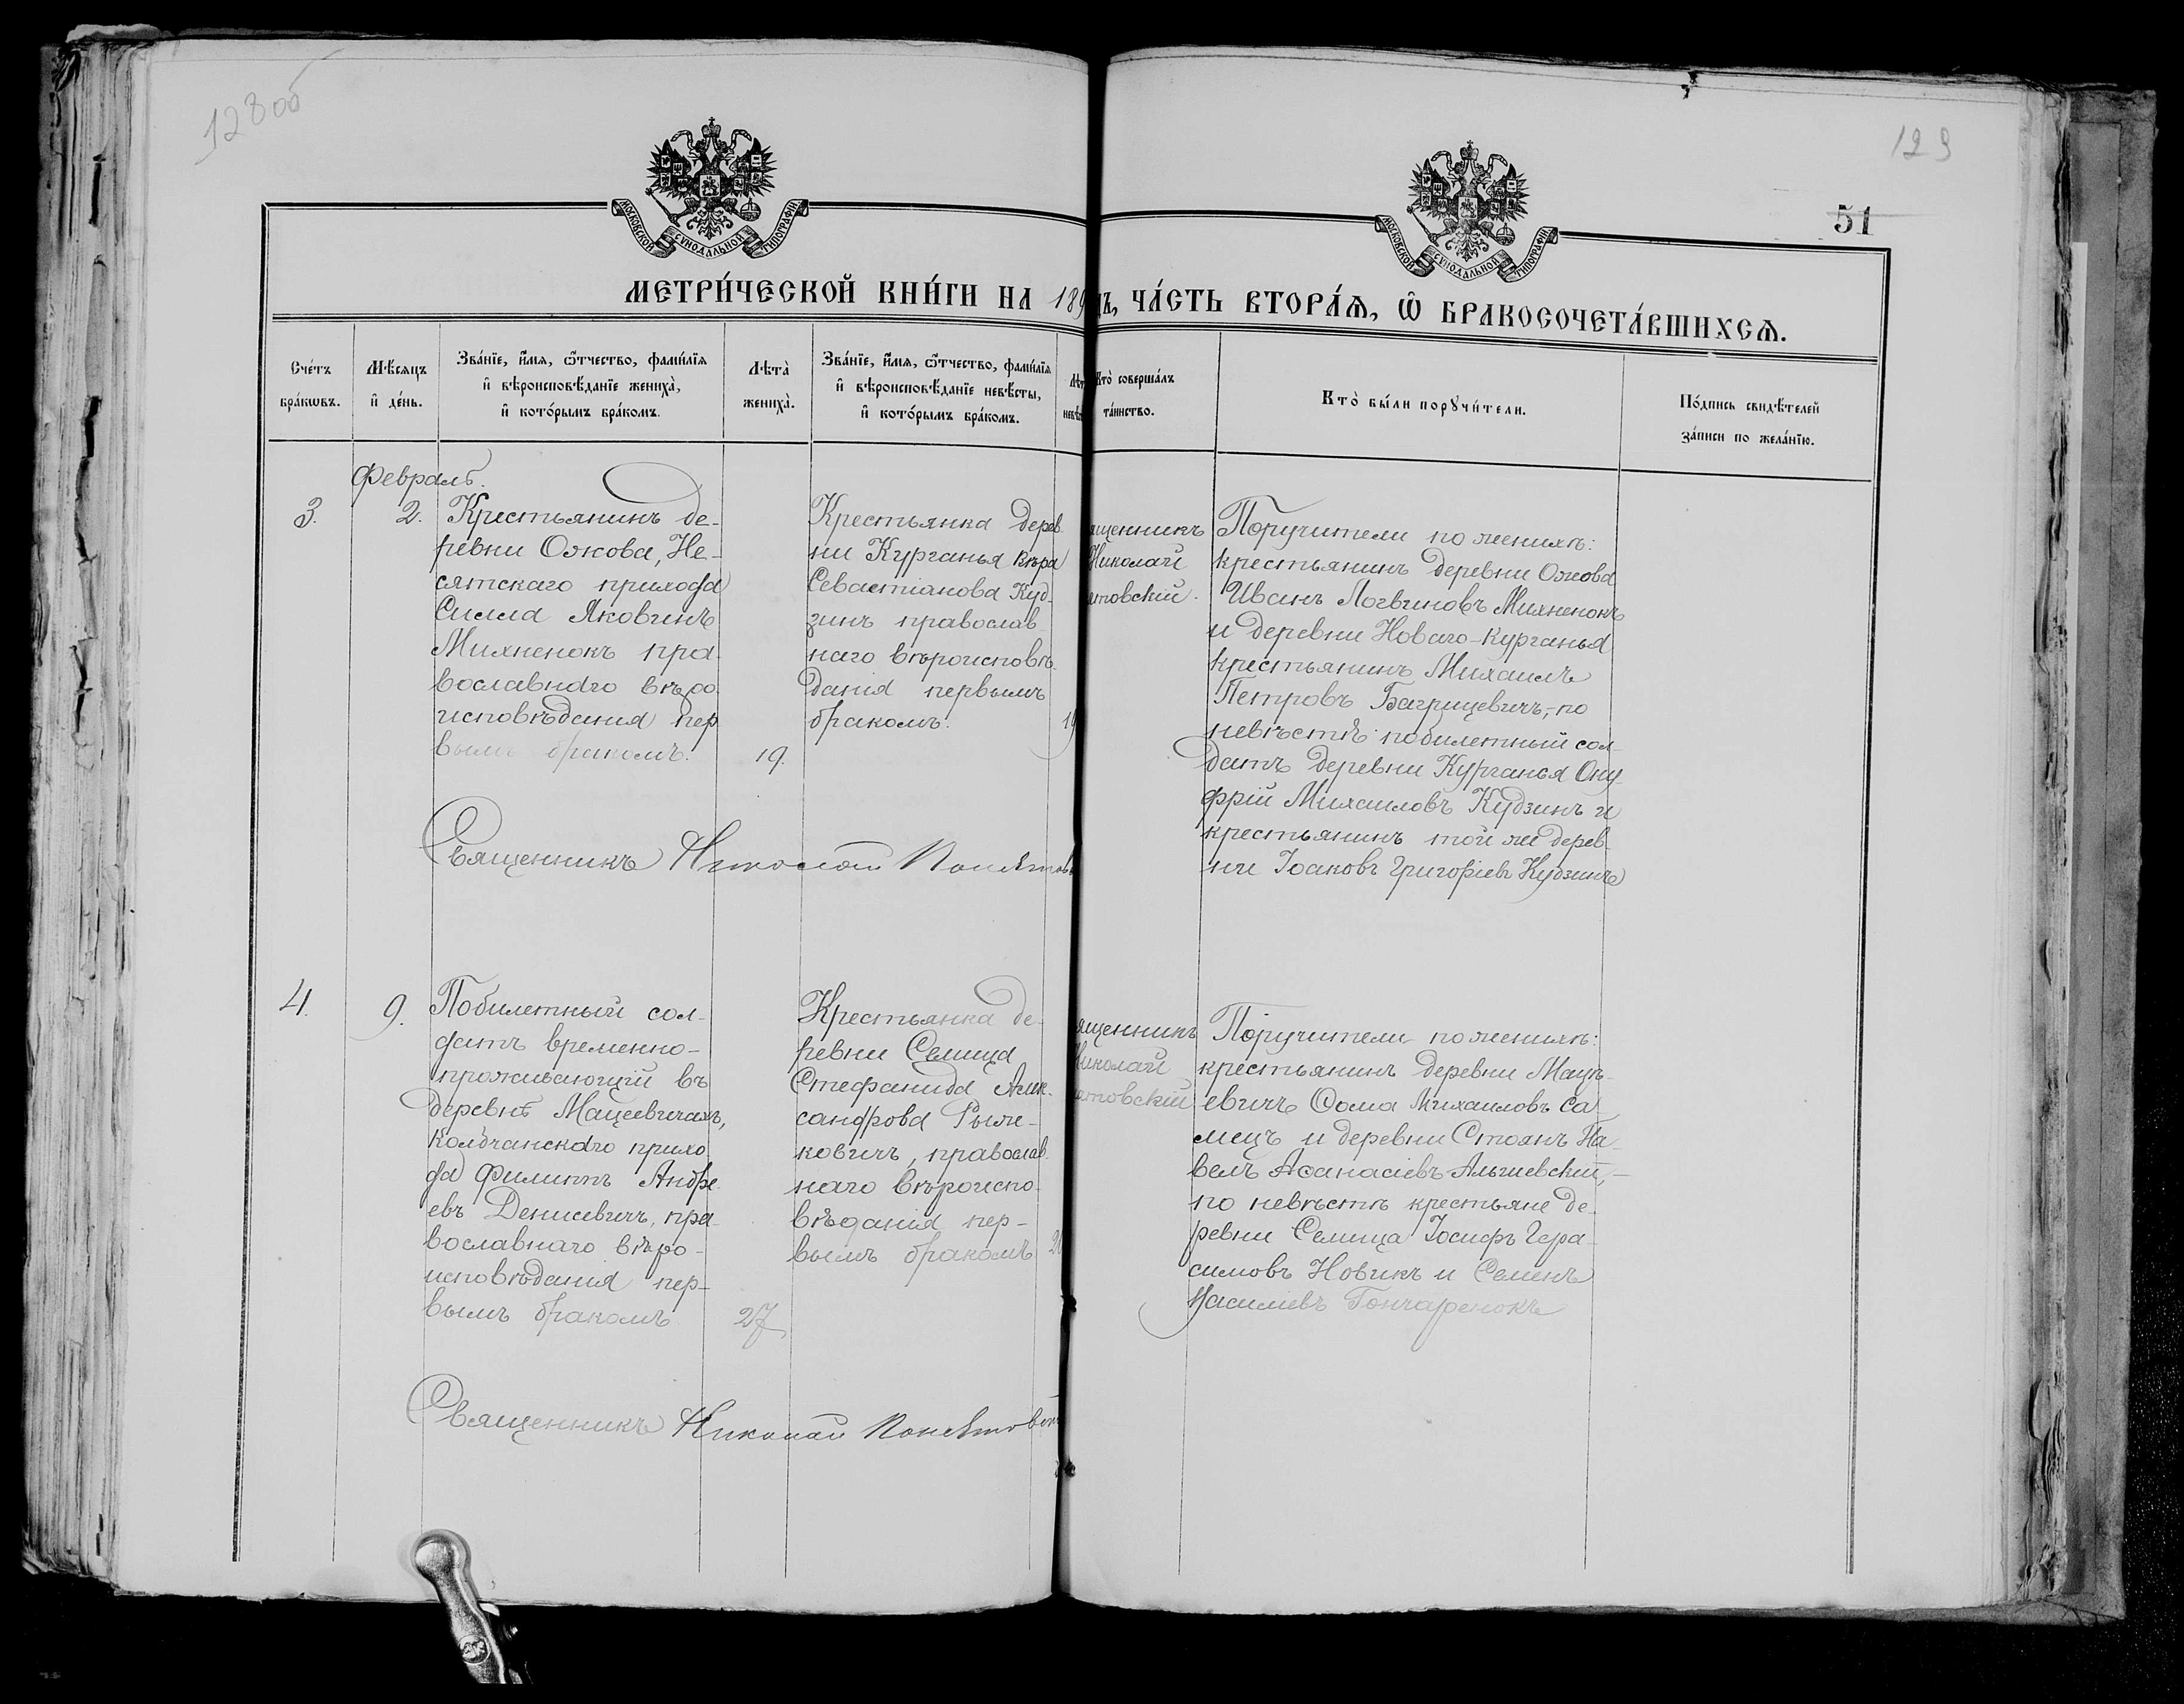 128об
129
51
МОСКОВСКОЙ СѴНОДАЛЬНОЙ ТИПОГРАФІИ
МОСКОВСКОЙ СѴНОДАЛЬНОЙ ТИПОГРАФІИ
МЕТРИ́ЧЕСКОЙ КНИ́ГИ НА 189 ЧА́СТЬ ВТОРА́Ѧ, Ѿ БРАКОСОЧЕТА́ВШИХСѦ.
Сче́тъ
бра́кѡвъ.
Мѣ́сѧцъ
и҆ де́нь.
Зва́нїе, и҆́мѧ, ѻ҆́тчество, фамѝлїѧ
и҆ вѣроисповѣ́данїе женихà,
и҆ кото́рымъ бра́комъ.
Лѣтà
женихà.
Зва́нїе, и҆́мѧ, ѻ҆́тчество, фамѝлїѧ
и҆ вѣроисповѣ́данїе невѣ́сты,
и҆ кото́рымъ бра́комъ.
Кто̀ соверша́лъ
та́инство.
Кто̀ бы́ли порꙋчи́тели.
По́дпись свидѣ́телей
за́писи по жела́нїю.
Февраль.
3.
2.
Крестьянинъ де-
ревни Ожова, Не-
сятскаго прихода
Силла Яковинъ
Михненокъ пра-
вославнаго вѣро-
исповѣданія пер
вымъ бракомъ.
19.
Крестьянка дерев
ни Курганья Вѣра
Севастіанова Куд-
зинъ православ
наго вѣроисповѣ-
данія первымъ
бракомъ.
19
ященникъ
Николай
ятовскій.
Поручители по женихѣ:
крестьянинъ деревни Ожова
Иванъ Логвиновъ Михненокъ
и деревни Новаго-Курганья
крестьянинъ Михаилъ
Петровъ Багрицевичъ,-по
невѣстѣ: побилетный сол
датъ деревни Курганья Ону
фрій Михаиловъ Кудзинъ и
крестьянинъ той же дерев-
ни Іоаковъ Григоріевъ Кудзинъ
Священникъ Николай Понятовс
4.
9.
Побилетный сол-
датъ временно-
проживающій въ
деревнѣ Мацеевичахъ,
Колбчанскаго прихо
да Филиппъ Андре
евъ Денисевичъ, пра-
вославнаго вѣро-
исповѣданія пер-
вымъ бракомъ
27
Крестьянка де-
ревни Селища
Стефанида Алек-
сандрова Рыже-
ковичъ, православ
наго вѣроиспо-
вѣданія пер-
вымъ бракомъ
ященникъ
Николай
ятовскій
Поручители по женихѣ:
крестьянинъ деревни Мацѣ-
евичъ Ѳома Михаиловъ Са
мецъ и деревни Стоянъ Па
велъ Аѳанасіевъ Альшевскій,-
по невѣстѣ крестьяне де-
ревни Селища Іосифъ Гера-
симовъ Новикъ и Семенъ
Василіевъ Гончаренокъ
Священникъ Николай Понятовск